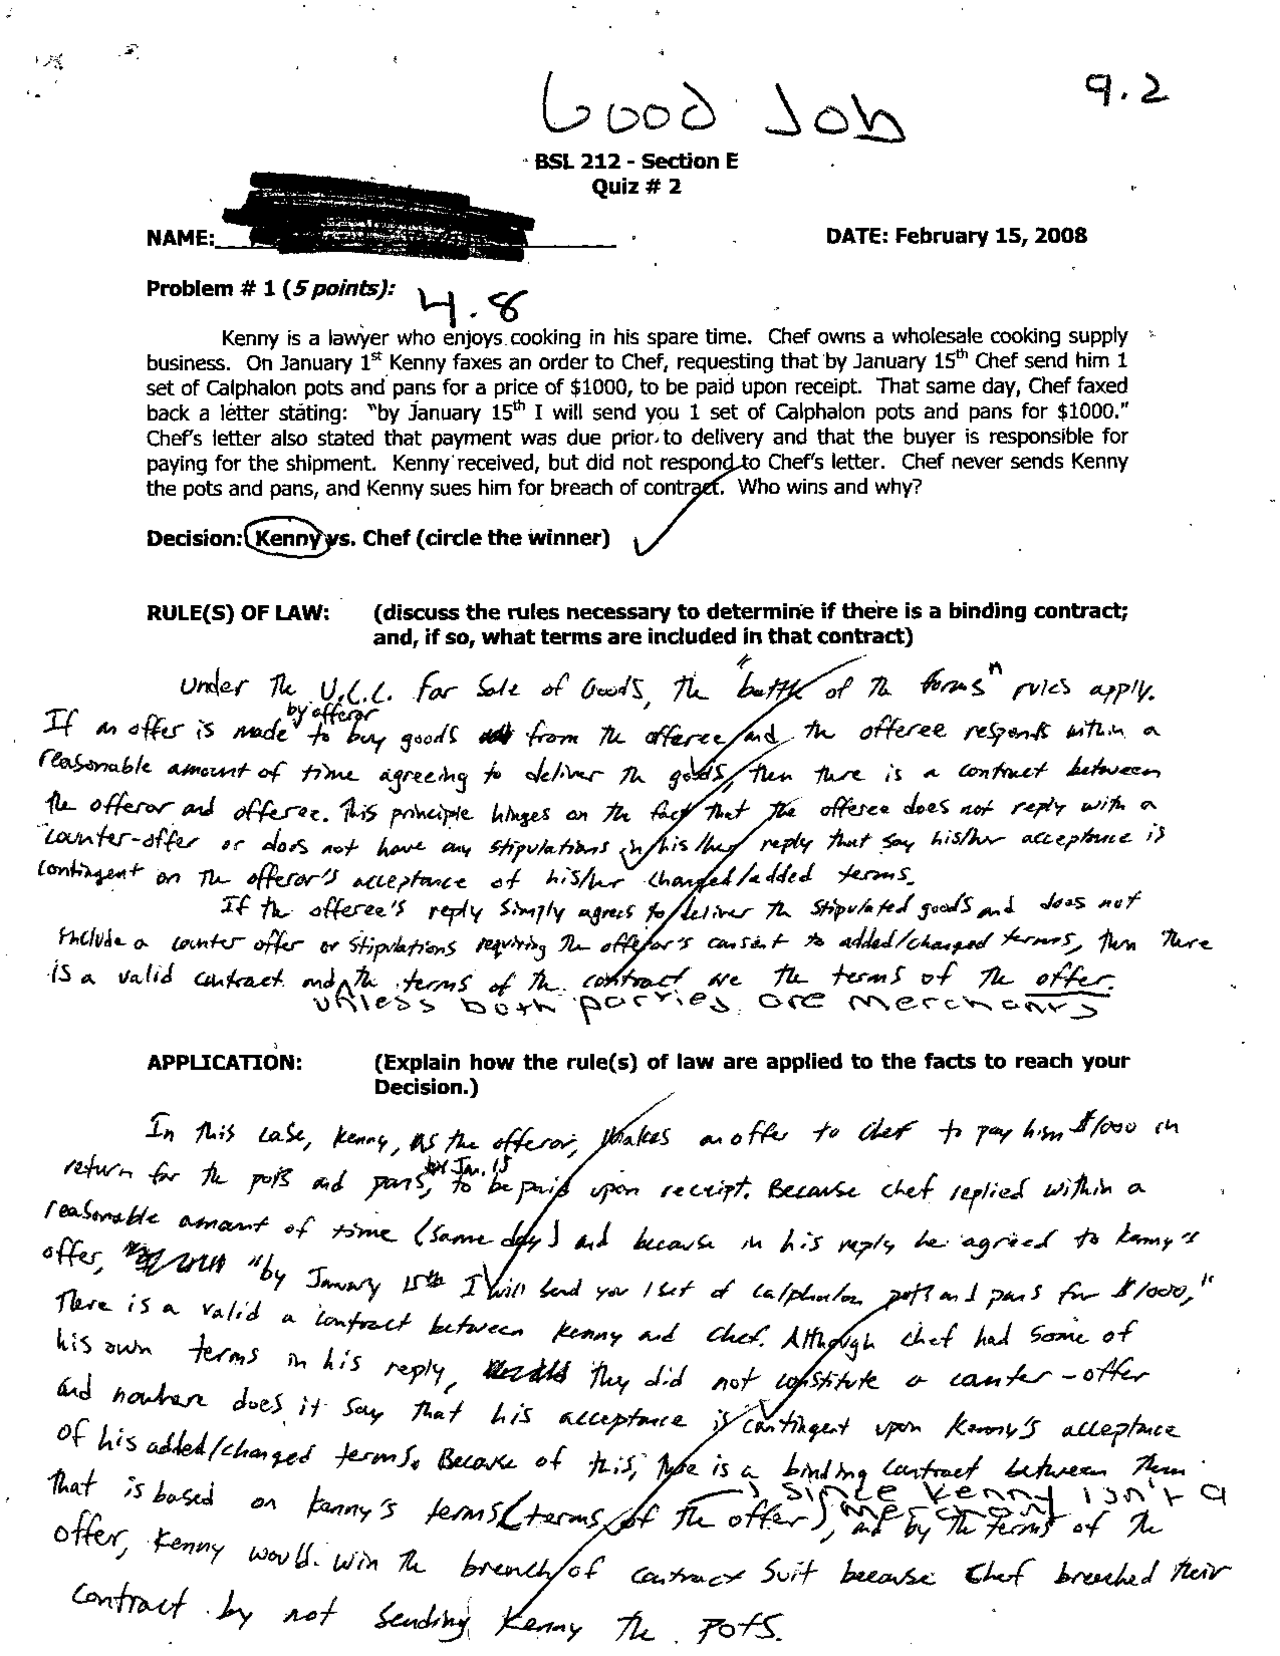 Good Job
9.2
BSL 212 - Section E
Quiz # 2
NAME:
DATE: February 15, 2008
Problem # 1 (5 points): 4.8
Kenny is a lawyer who enjoys cooking in his spare time. Chef owns a wholesale cooking supply
business. On January 1st Kenny faxes an order to Chef, requesting that by January 15th Chef send him 1
set of Calphalon pots and pans for a price of $1000, to be paid upon receipt. That same day, Chef faxed
back a letter stating: "by January 15th I will send you 1 set of Calphalon pots and pans for $1000."
Chef's letter also stated that payment was due prior to delivery and that the buyer is responsible for
paying for the shipment. Kenny received, but did not respond to Chef's letter. Chef never sends Kenny
the pots and pans, and Kenny sues him for breach of contract. Who wins and why?
Decision: Kenny vs. Chef (circle the winner)
RULE(S) OF LAW: (discuss the rules necessary to determine if there is a binding contract;
and, if so, what terms are included in that contract)
Under the U.C.C. for Sale of Goods, the "battle of the forms" rules apply.
by offeror
If an offer is made to buy goods from the offeree and the offeree responds within a
reasonable amount of time agreeing to deliver the goods, then there is a contract between
the offeror and offeree. This principle hinges on the fact that the offeree does not reply with a
counter-offer or does not have any stipulations in his/her reply that say his/her acceptance is
contingent on the offeror's acceptance of his/her changed/added terms.
If the offeree's reply simply agrees to deliver the stipulated goods and does not
include a counter offer or stipulations requiring the offeror's consent to added/changed terms, then there
is a valid contract and the terms of the contract are the terms of the offer.
unless both parties are merchants
APPLICATION: (Explain how the rule(s) of law are applied to the facts to reach your
Decision.)
In this case, Kenny, as the offeror, makes an offer to Chef to pay him $1000 in
by Jan. 15
return for the pots and pans, to be paid upon receipt. Because Chef replied within a
reasonable amount of time (same day) and because in his reply he agreed to Kenny's
offer, "by January 15th I will send you 1 set of Calphalon pots and pans for $1000,"
There is a valid a contract between Kenny and Chef. Although Chef had some of
his own terms in his reply, they did not constitute a counter-offer
and nowhere does it say that his acceptance is contingent upon Kenny's acceptance
of his added/changed terms. Because of this, there is a binding contract between them
since Kenny isn't a merchant
that is based on Kenny's terms (terms of the offer), and by the terms of the
offer, Kenny would win the breach of contract suit because Chef breached their
contract by not sending Kenny the pots.